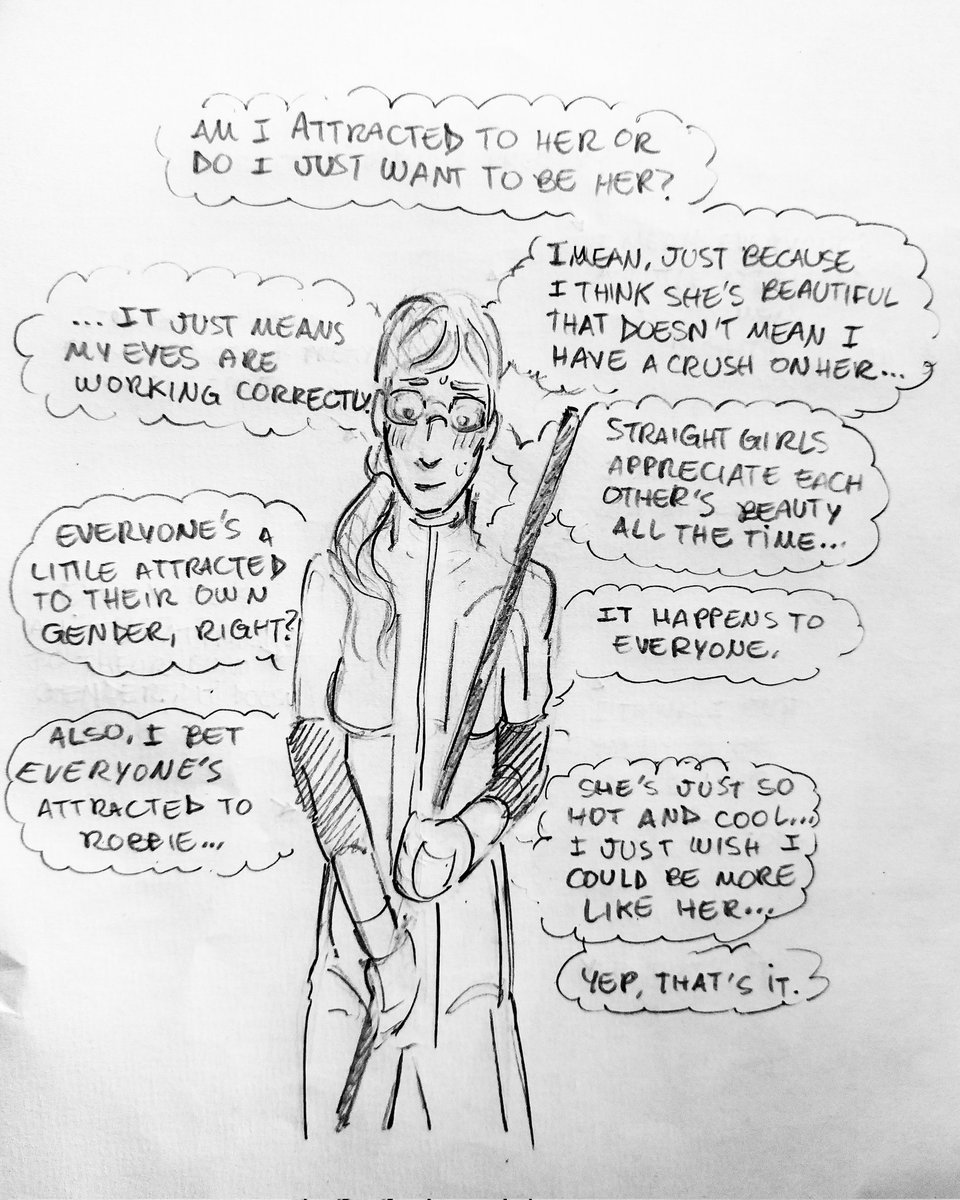 AM I ATTRACTED TO HER OR
DO I JUST WANT TO BE HER?
I MEAN, JUST BECAUSE
I THINK SHE'S BEAUTIFUL
THAT DOESN'T MEAN I
HAVE A CRUSH ON HER...
... IT JUST MEANS
MY EYES ARE
WORKING CORRECTLY
STRAIGHT GIRLS
APPRECIATE EACH
OTHER'S BEAUTY
ALL THE TIME...
EVERYONE'S A
LITTLE ATTRACTED
TO THEIR OWN
GENDER, RIGHT?
IT HAPPENS TO
EVERYONE.
ALSO, I BET
EVERYONE'S
ATTRACTED TO
ROBBIE...
SHE'S JUST SO
HOT AND COOL...
I JUST WISH I
COULD BE MORE
LIKE HER...
YEP, THAT'S IT.